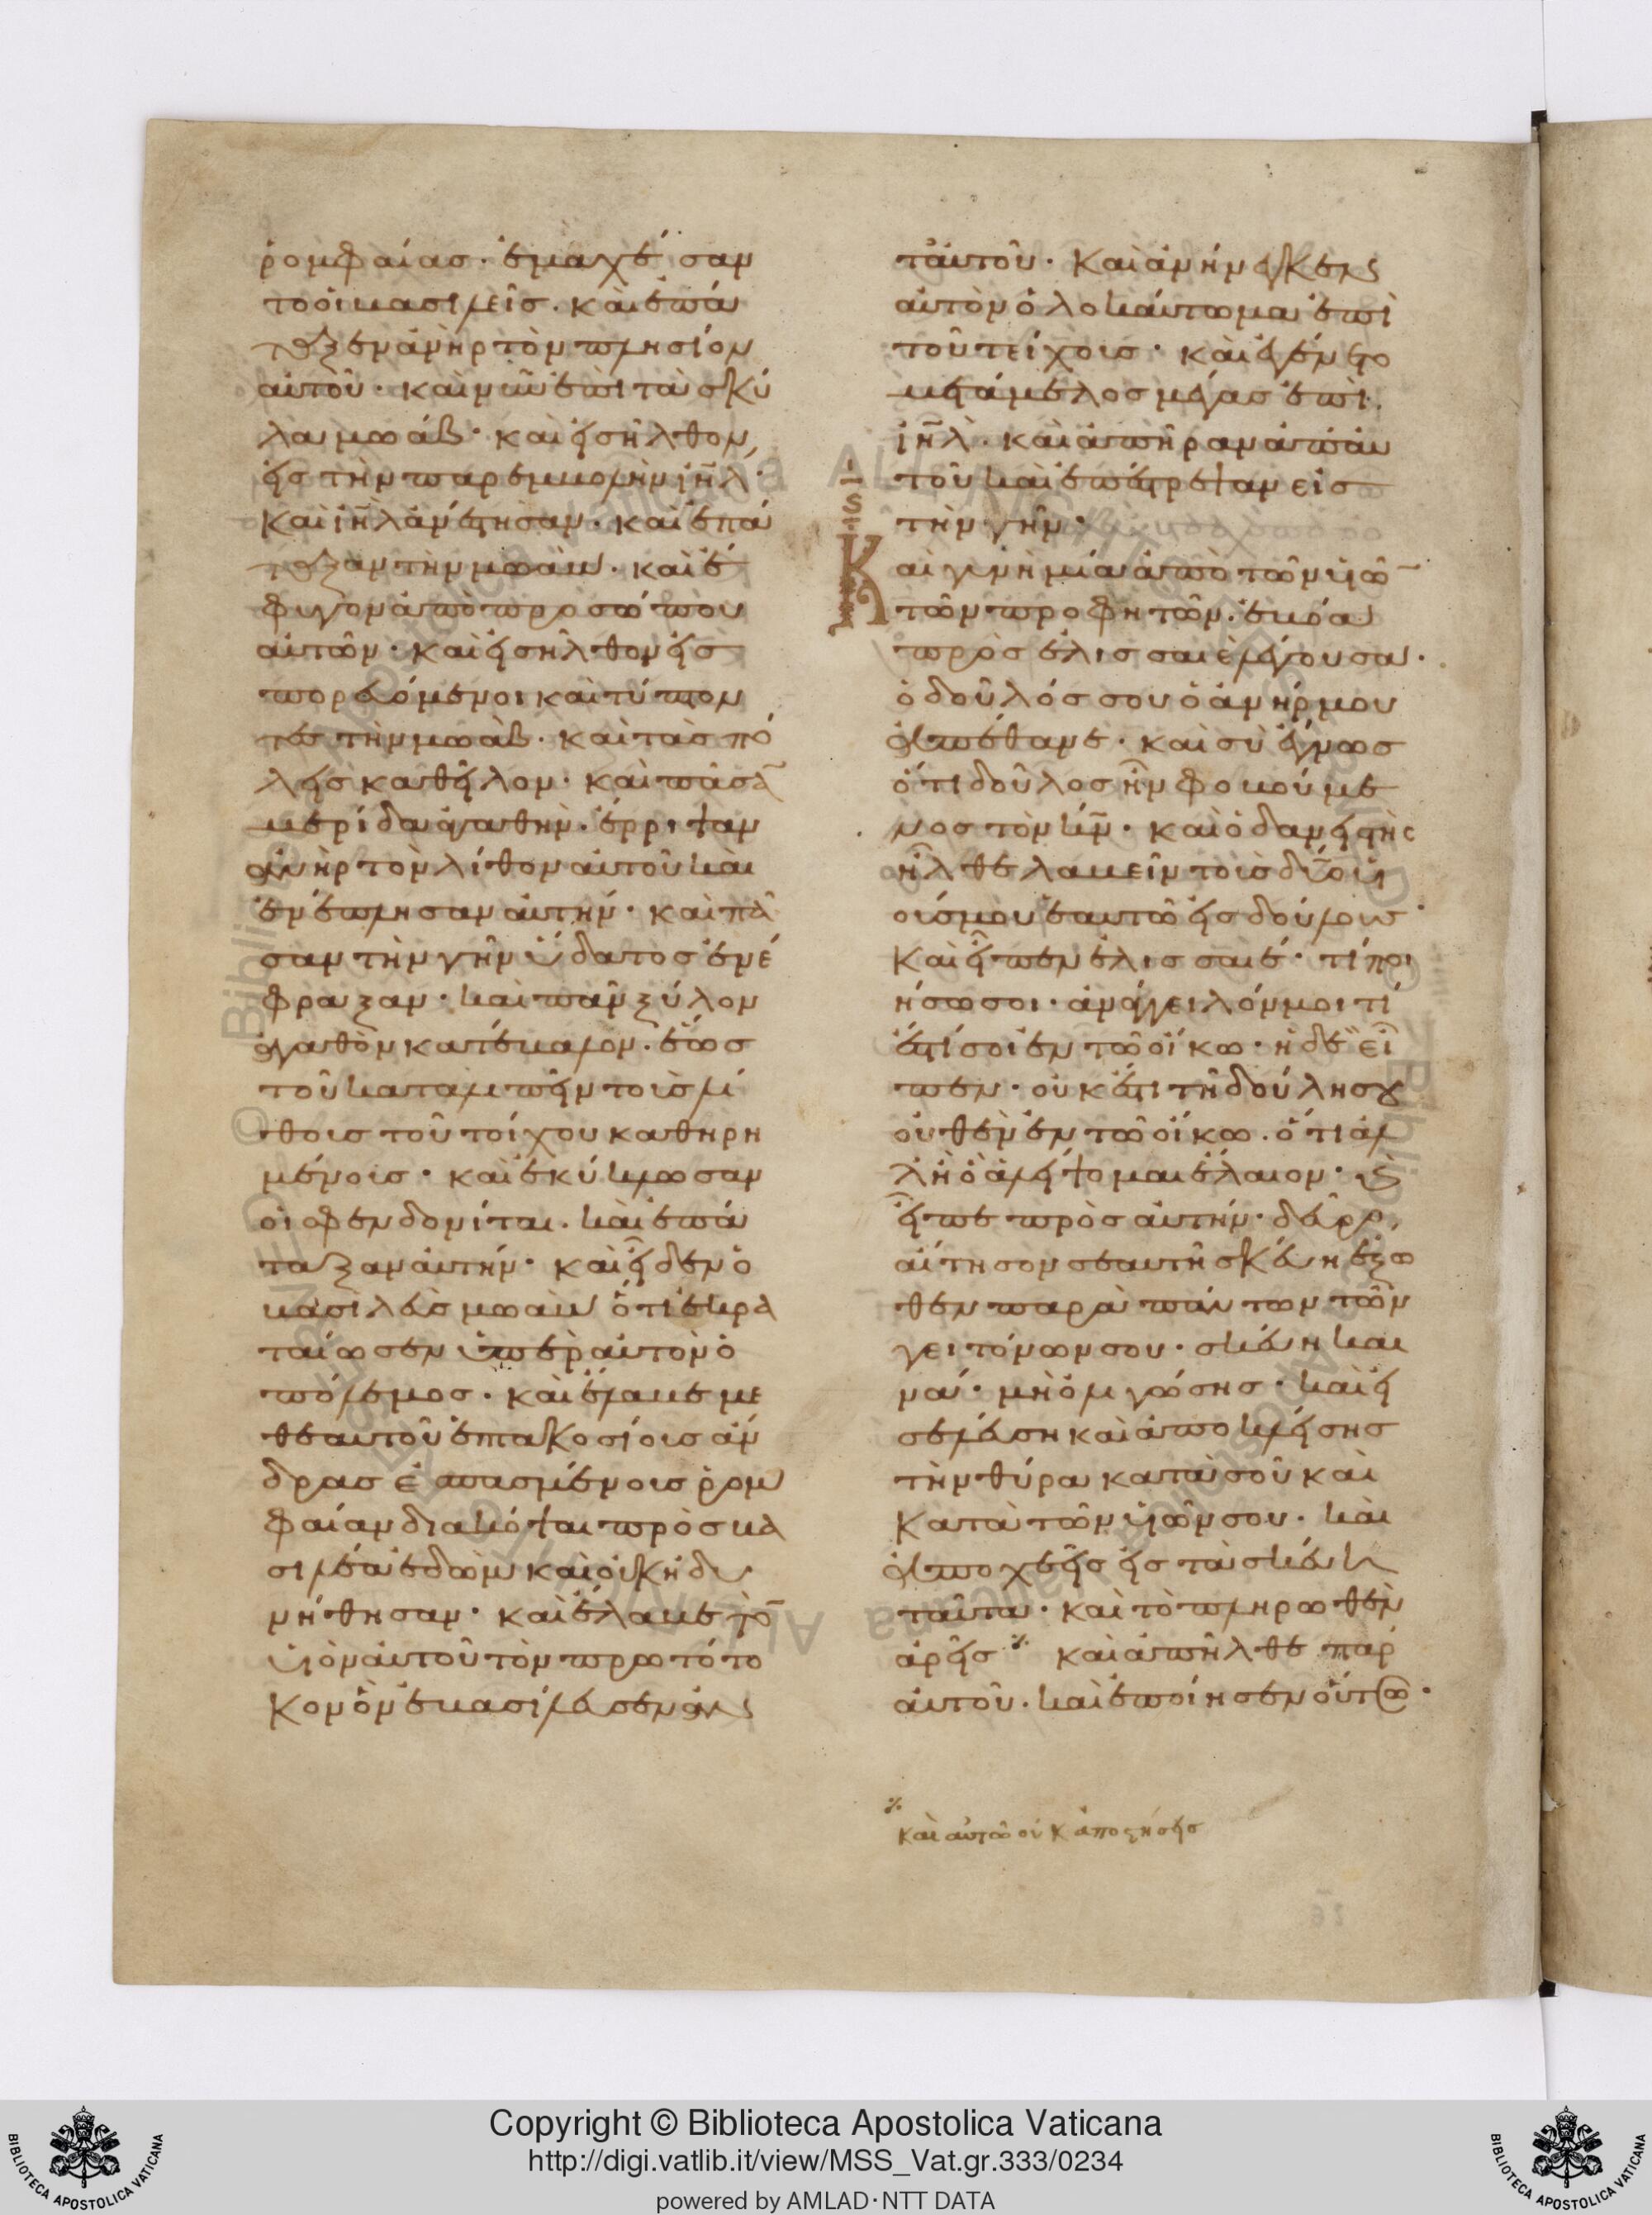 ῥομφαίας· ἐμαχέσαν
το οἱ βασιλεῖς· καὶ ἐπά
ταξεν ἀνὴρ τὸν πλησίον
αὐτοῦ· καὶ νῦν ἐπὶ τὰ σκύ
λα μωάβ· καὶ εἰσῆλθον
εἰς τὴν παρεμβολὴν ιηλ·
καὶ ιηλ ἀνέστησαν· καὶ ἐπά
ταξαν τὴν μωάβ· καὶ ἔ
φυγον ἀπὸ προσώπου
αὐτῶν· καὶ εἰσῆλθον εἰσ
πορευόμενοι καὶ τύπτον
τες τὴν μωάβ· καὶ τὰς πό
λεις καθεῖλον· καὶ πᾶσα
μερίδα ἀγαθὴν· ἔρριψαν
ἀνὴρ τὸν λίθον αὐτοῦ καὶ
ἐνέπλησαν αὐτήν· καὶ πᾶ
σαν τὴν γῆν ὕδατος ἐνέ
φραξαν· καὶ πᾶν ξύλον
ἀγαθὸν κατέβαλον· ἕως
τοῦ καταλιπεῖν τοὺς λί
θους τοῦ τοίχου καθηρη
μένους· καὶ ἐκύκλωσαν
οἱ σφενδονίται· καὶ ἐπά
ταξαν αὐτήν· καὶ εἶδεν ὁ
βασιλεὺς μωὰβ ὅτι ἐκρα
ταίωσεν ὑπὲρ αὐτὸν ὁ
πόλεμος· καὶ ἔλαβε με
θεαυτοῦ ἑπτακοσίους ἄν
δρας ἐσπασμένους ῥομ
φαίαν διακόψαι πρὸς βα
σιλέα ἐδὼμ καὶ οὐκ ηδυ
νήθησαν· καὶ ἔλαβε το
υἱὸν αὐτοῦ τὸν πρωτότο
κον ὃν ἐβασίλευσεν ἀν
τ αὐτοῦ· καὶ ἀνήνεγκεν
αὐτὸν ὁλοκάυτωμα ἐπὶ
τοῦ τείχους· καὶ ἐγένετο
μετάμελος μέγας ἐπὶ
ιηλ· καὶ ἀπῆραν ἀπ αὐ
τοῦ καὶ ἐπέστρεψαν εἰς
τὴν γῆν·
ις
Καὶ γυνὴ μία ἀπὸ τῶν υἱῶ
τῶν προφητῶν· ἐβόα
πρὸς ἐλισσαιὲ λέγουσα·
ὁ δοῦλός σου ὁ ἀνήρ μου
ἀπέθανε· καὶ σὺ ἔγνως
ὅτι δοῦλος ἦν φοβούμε
νος τὸν κν· καὶ ὁ δανειστὴς
ἦλθε λαβεῖν τοὺς δύο υἱ
ούς μου ἑαυτῶ εἰς δούλους·
καὶ εἶπεν ἐλισσαιέ· τί ποι
ήσω σοι· ἀνάγγειλόν μοι τί
ἐστί σοι ἐν τῶ οἴκω· ἡ δὲ εἶ
πεν· οὐκ ἔστι τῆ δούλη σου
οὐθὲν ἐν τῶ οἴκω· ὅτι ἀλ
λ ἢ ὃ ἀλείψομαι ἔλαιον· καὶ
εἶπε πρὸς αὐτήν· δεῦρο,
αἴτησον σεαυτῆ σκεύη ἔξω
θεν παρὰ πάντων τῶν
γειτόνων σου· σκεύη κε
νά· μὴ ὀλιγώσης· καὶ εἰ
σελεύση καὶ ἀποκλείσης
τὴν θύρα κατὰ σοῦ καὶ
κατὰ τῶν υἱῶν σου· καὶ
ἀποχεεῖς εἰς τὰ σκεύη
ταῦτα· καὶ τὸ πληρωθὲν
ἀρεῖς ⁒ καὶ ἀπῆλθε παρ
αὐτοῦ· καὶ ἐποίησεν οὕτως·
⁒
καὶ αὐτῶ οὐκ ἀποστήσεις
Copyright © Biblioteca Apostolica Vaticana
http://digi.vatlib.it/view/MSS_Vat.gr.333/0234
powered by AMLAD·NTT DATA
BIBLIOTECA APOSTOLICA VATICANA
BIBLIOTECA APOSTOLICA VATICANA